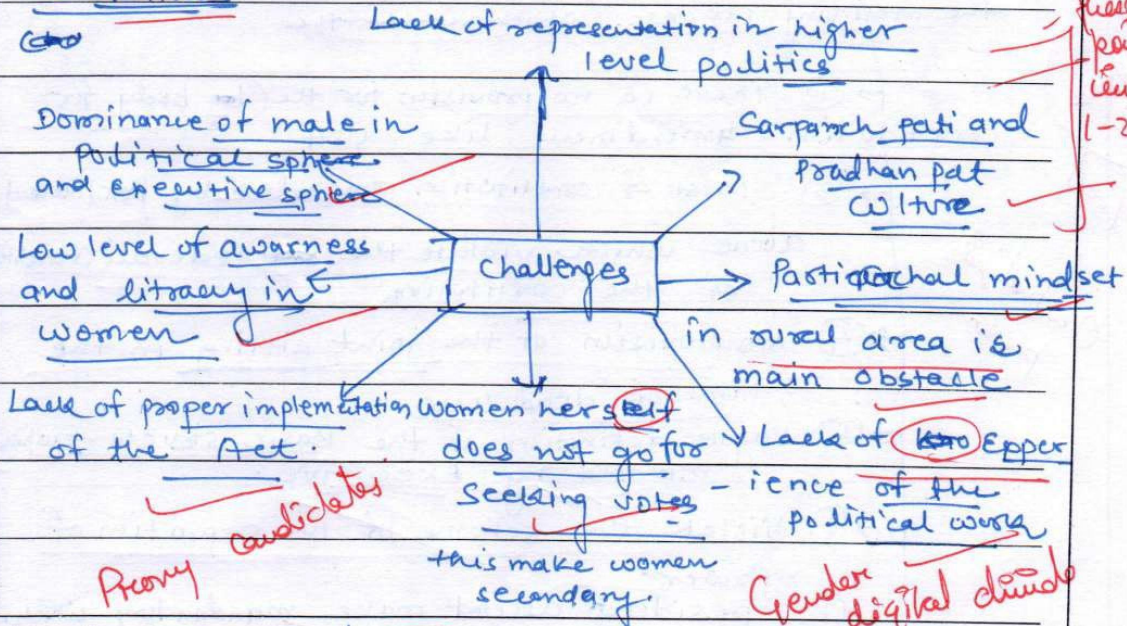 Lack of representation in higher
level politics
Dominance of male in
political sphere
and executive sphere
Sarpanch pati and
Pradhan pat
culture
Low level of awarness
and litracy in
women
Challenges
mindset
in rural area is
main obstacle
Lack of proper implementation
of the Act.
women herself
does not go for
seeking votes
this make women
secondary.
Lack of Epper
- ience of the
political work
candidates
Gender
digital divide
1-2